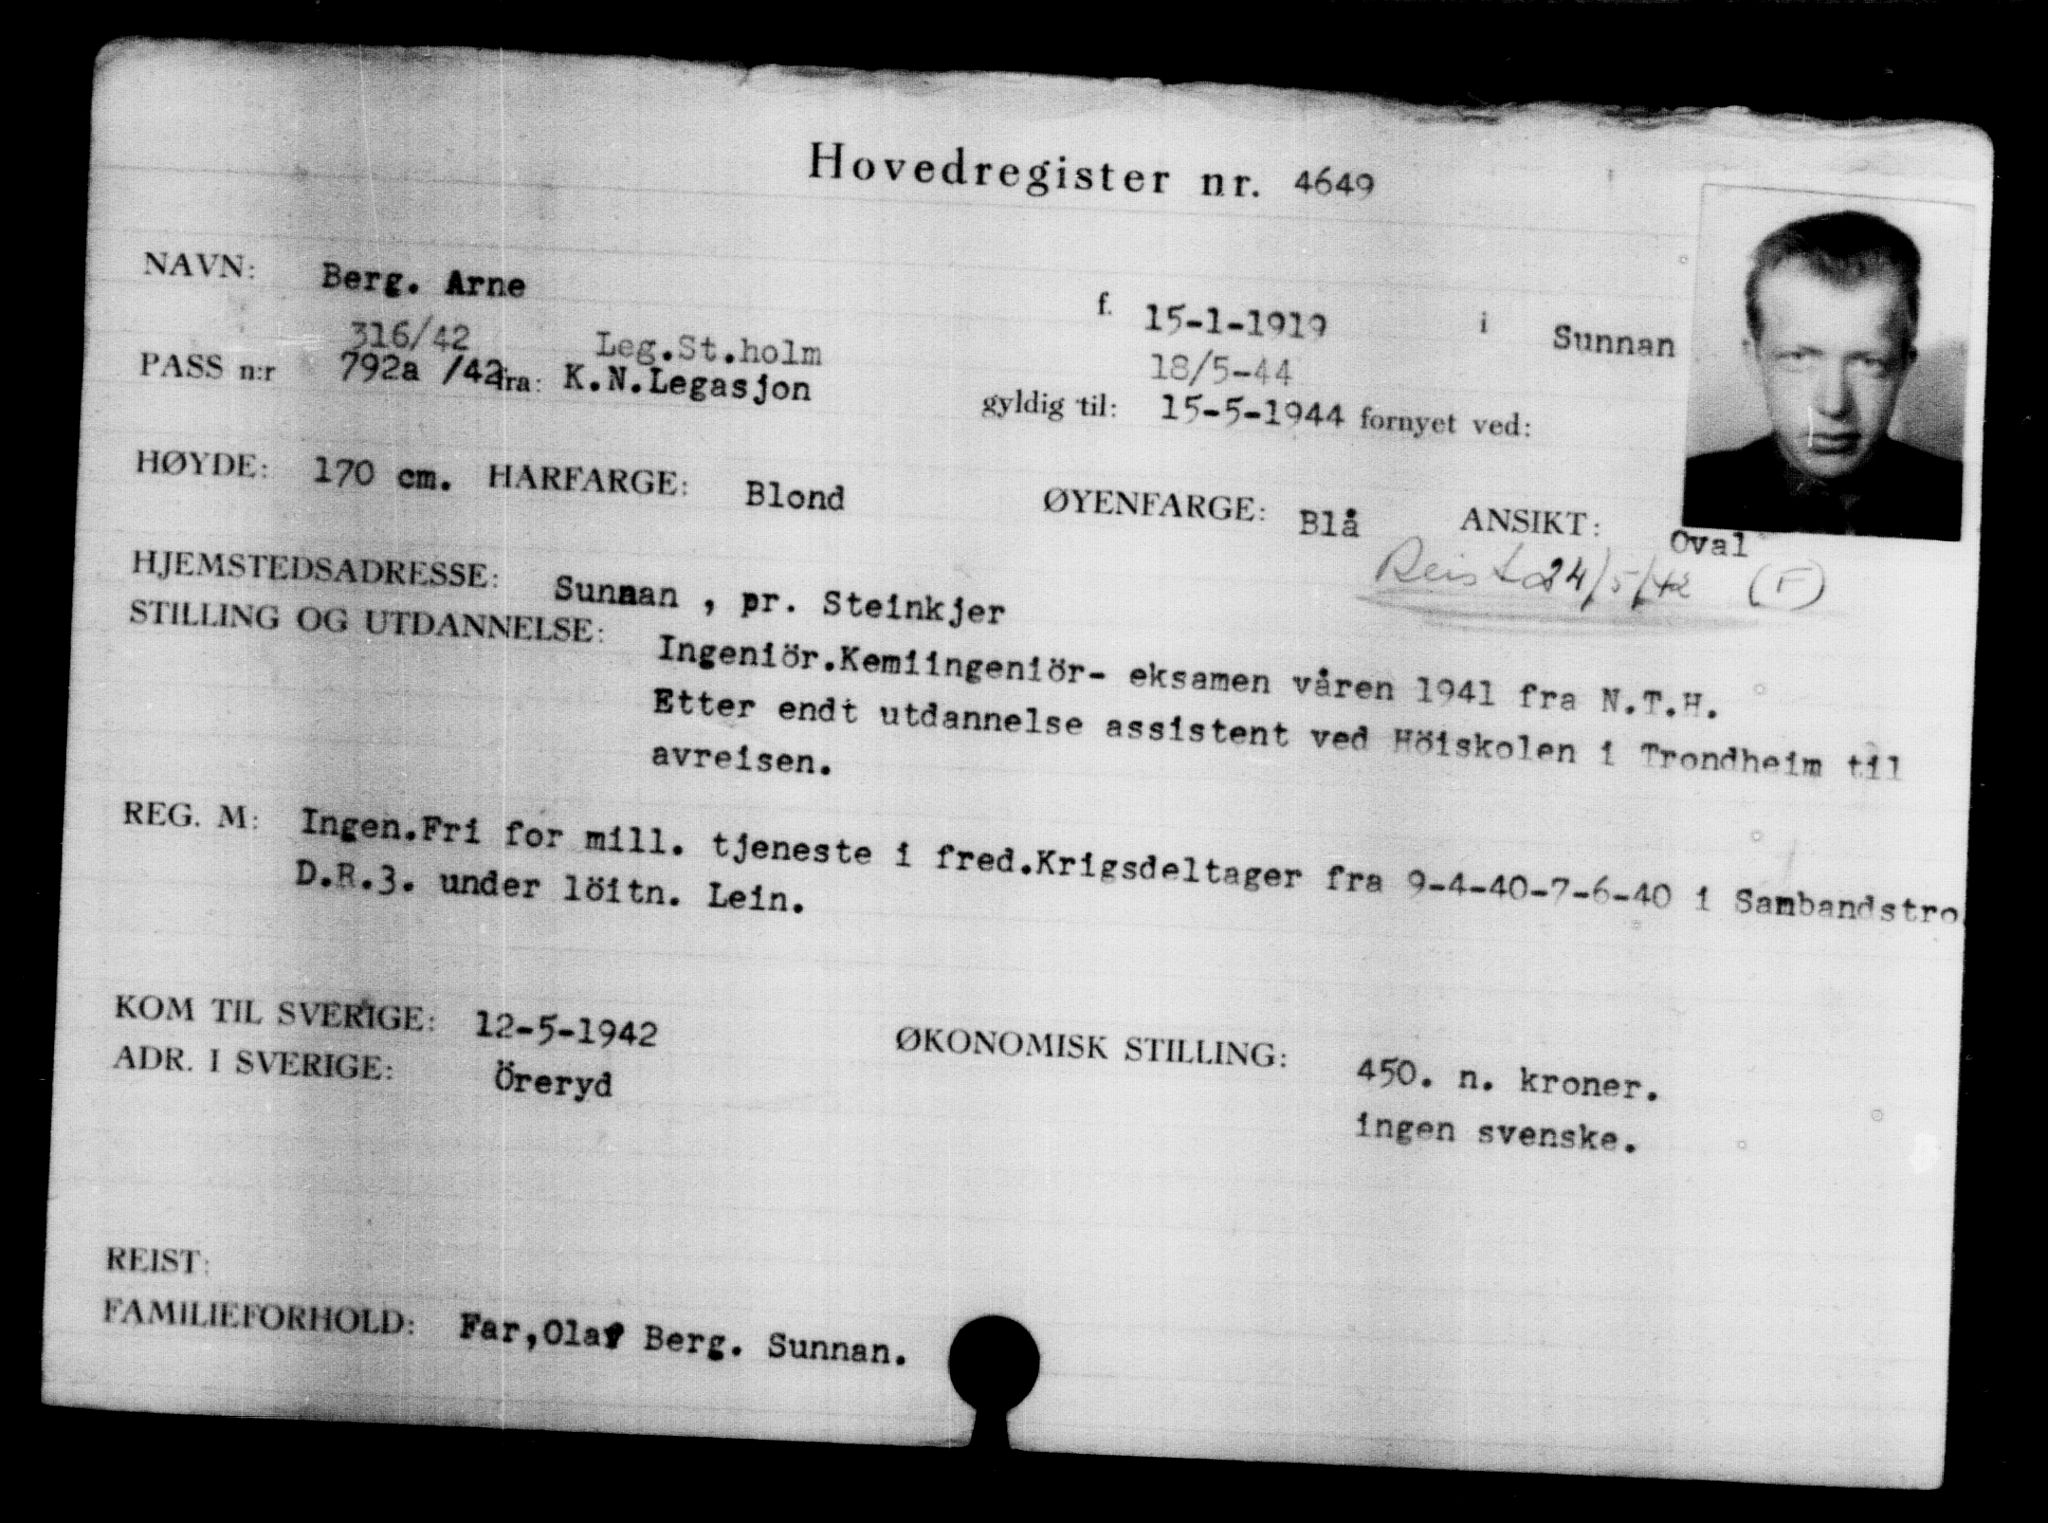 Hovedregister nr. 4649
NAVN: Berg. Arne f. 15-1-1919 i Sunnan
316/42 Leg.St.holm 18/5-44
PASS n:r 792a /42 fra: K.N.Legasjon gyldig til: 15-5-1944 fornyet ved:
HØYDE: 170 cm. HARFARGE: Blond ØYENFARGE: Blå ANSIKT: Oval
Reist 24/5/42 (F)
HJEMSTEDSADRESSE: Sunnan , pr. Steinkjer
STILLING OG UTDANNELSE: Ingeniör.Kemiingeniör- eksamen våren 1941 fra N.T.H.
Etter endt utdannelse assistent ved Höiskolen i Trondheim til
avreisen.
REG. M: Ingen.Fri for mill. tjeneste i fred.Krigsdeltager fra 9-4-40-7-6-40 i Sambandstro
D.R.3. under löitn. Lein.
KOM TIL SVERIGE: 12-5-1942 ØKONOMISK STILLING: 450. n. kroner.
ADR. I SVERIGE: Öreryd ingen svenske.
REIST:
FAMILIEFORHOLD: Far,Olaf Berg. Sunnan.